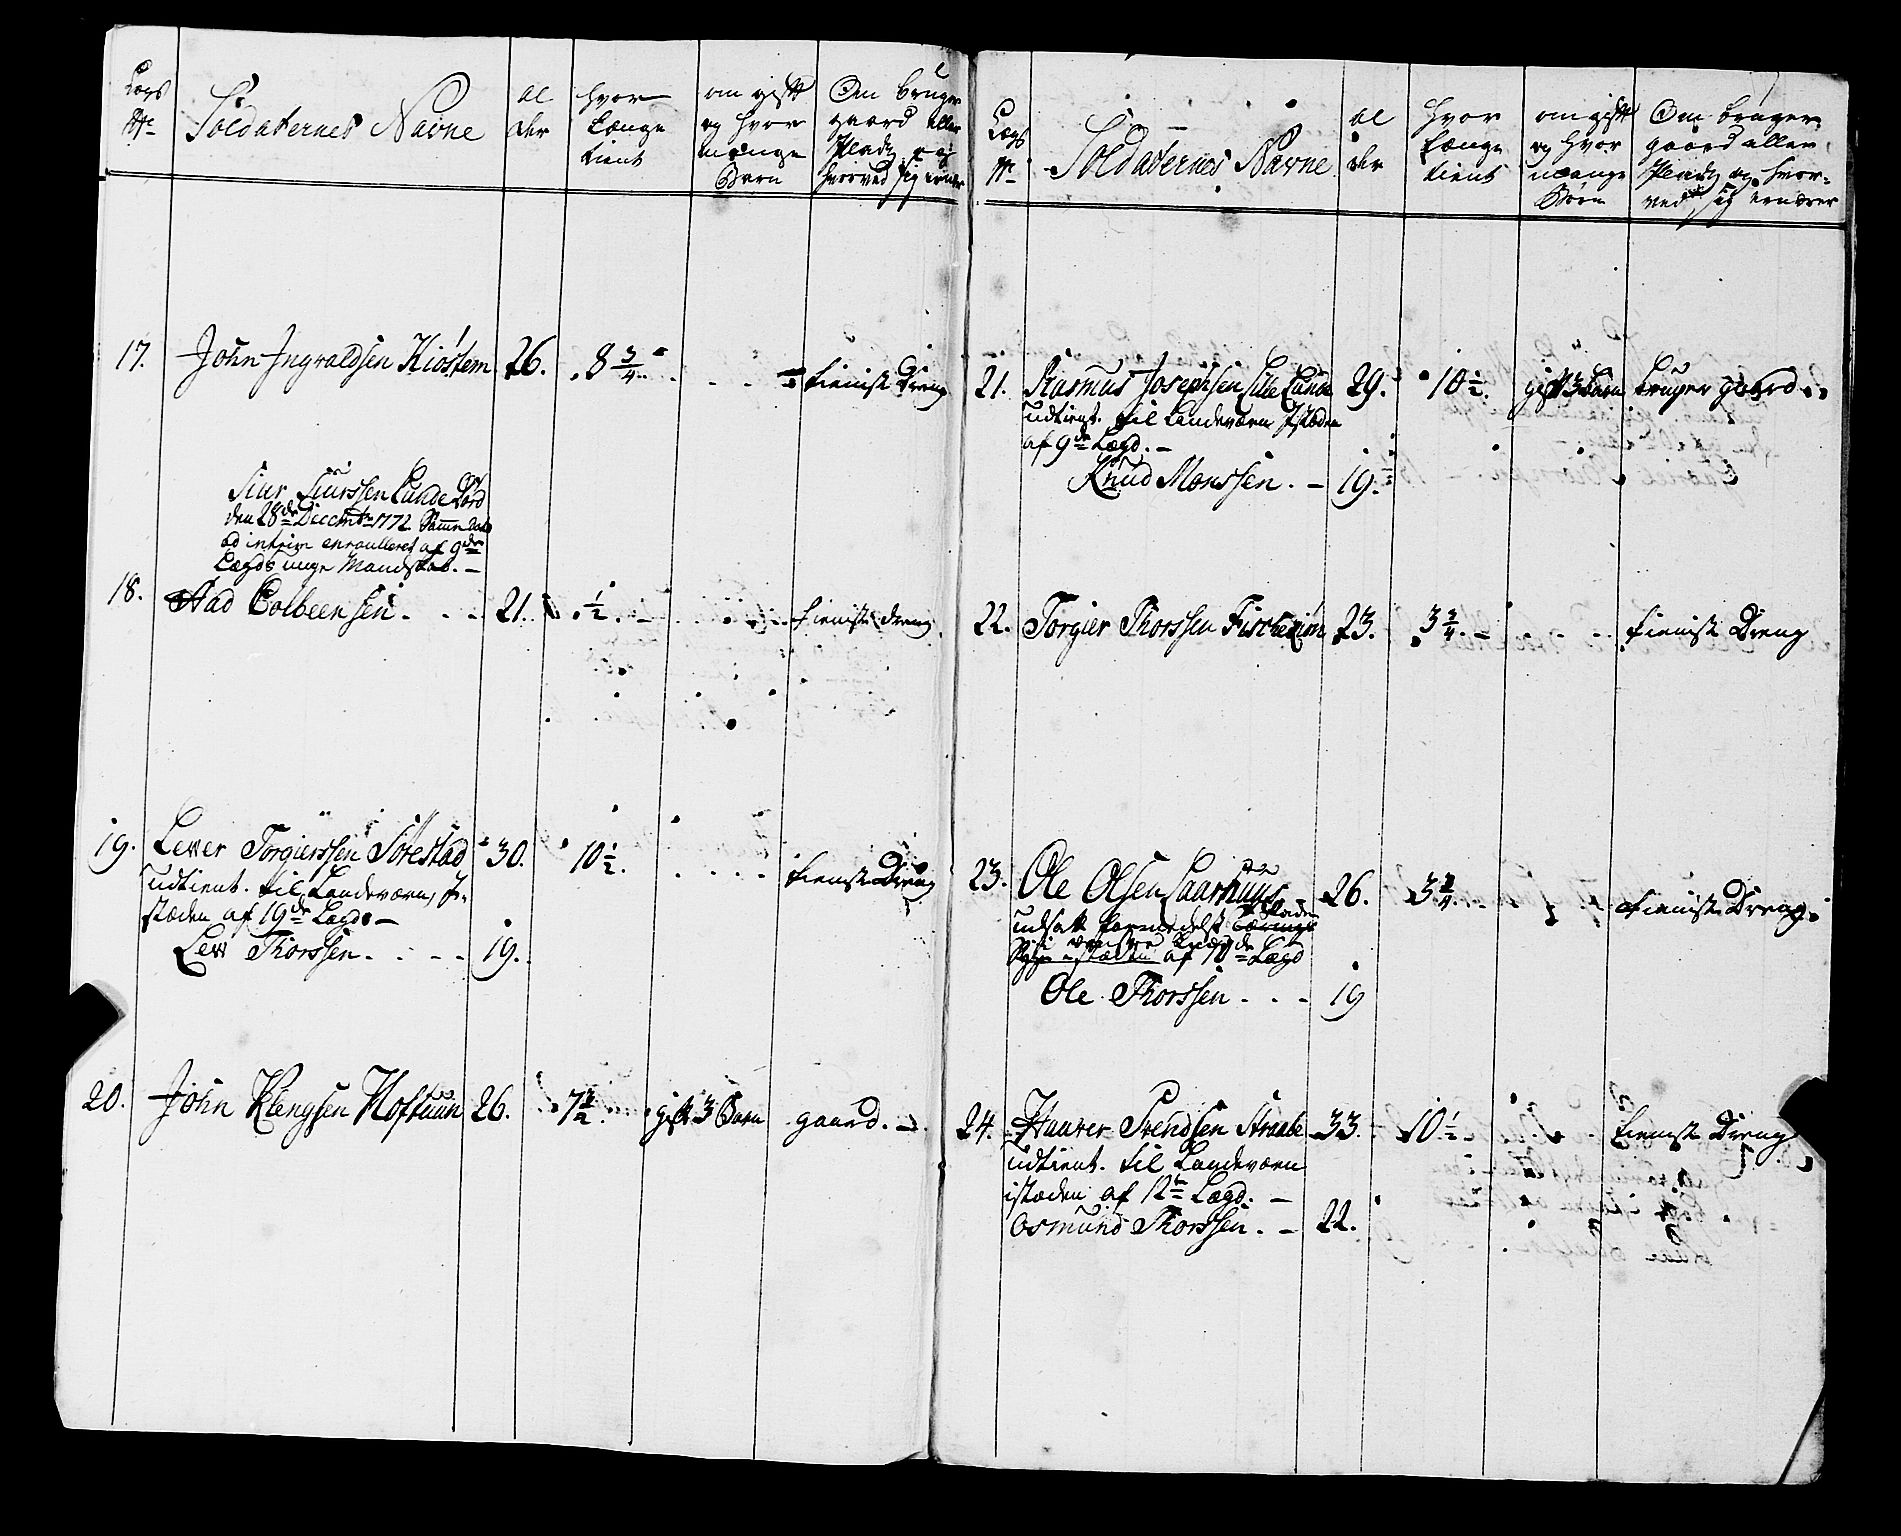 Lægs
No
Soldaternes Navne
al
der
hvor
Længe
tient
om gift
og hvor
mange
Børn
Om bruger
gaard eller
Pladz og
hvorved sig ernær
17. John Ingvaldsen Kiostem 26. 8 3/4 tieniste Dreng
Siur Siurssen Lunde
den 28de Decembr 1772 Samme Dato
ad intrim enroulleret af 9de
Lægds unge Mandskab. –
18. Aad Colbeensen. 21. 1/2. tieniste dreng
19. Lever Torgierssen Sørestad 30. 10 1/2. tieniste Dreng
udtient. til Landeværn, I-
stæden af 19de Lægd. –
Lew Thorssen. 19.
20. John Klengsen Hoftuun 26. 7 1/2. gift 3 Børn gaard. –
Lægs
No
Soldaternes Navne
al
der
hvor
længe
tient
om gift
og hvor
mange
Børn
Om bruger
gaard eller
Pladz og hvor-
ved sig ernærer
21. Rasmus Josephsen Lille Lunde 29. 10 1/2. gift 3 Børn bruger gaard.
udtient. til Landeværn Istæden
af 9de Lægd. –
Knud Monssen. – 19.
22. Torgier Thorssen 23. 3 3/4. – tieniste Dreng
23. Ole Olsen Saarhuus 26. 3 3/4. tieniste Dreng.
udsatt formedelst Skade
venstre Knæ
istæden af 10de Lægd
Ole Thorssen 19
24. Haaver Svendsen Straabe 33. 10 1/2 tieniste Dreng
udtient. til Landeværn
istæden af 12te Lægd. –
Osmund Thorssen. – 22.